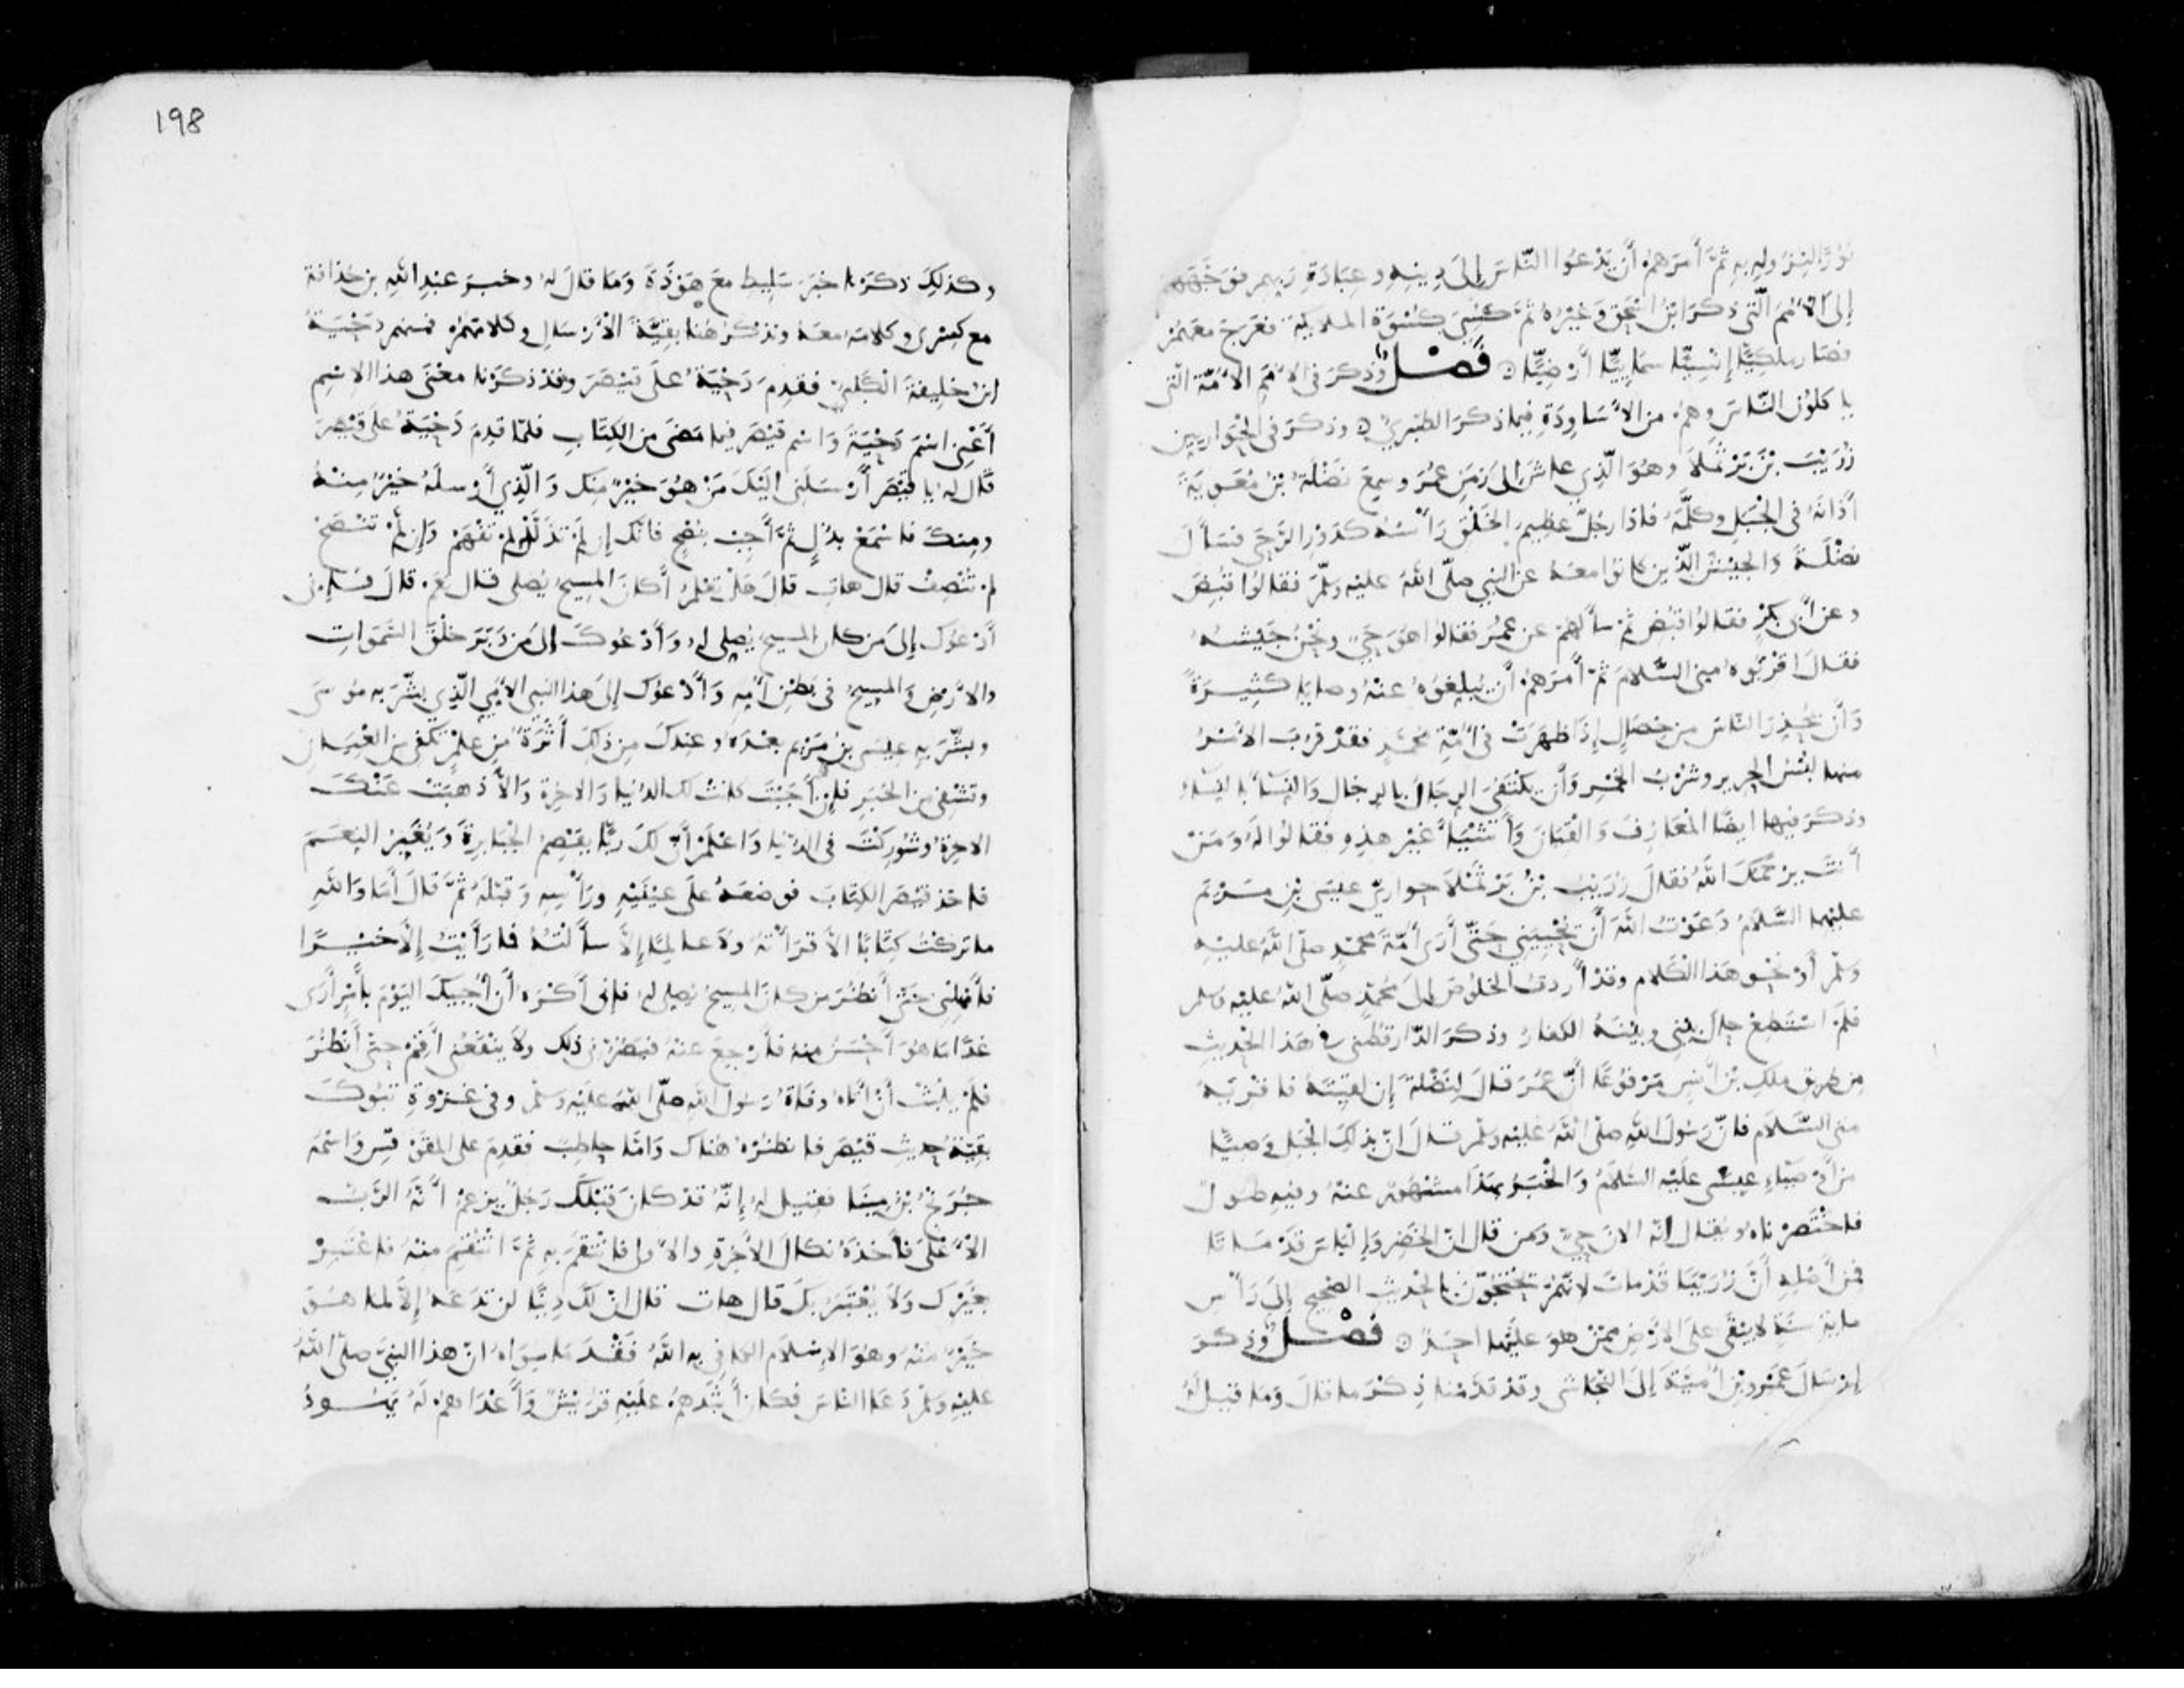 نُورًا لنزوله به ثمَّ أمرهم أن يدعوا الناسَ إلى دينه وعبادة ربهم فوجَّههم
إلى الأمم التي ذكرَ ابنُ اسحق وغيره ثمَّ كُسِيَ كسْوَة الملائكة فعرج معهم
فصار ملكيًّا إنسِيًّا سمايِيًّا أرْضِيًّا ۞ فَصْلٌ وذكرَ في الأمَمِ الأمّة التي
ياكلون الناسَ وهم من الأسَاوِدَةِ فيما ذكر الطبريُّ ۞ وذكرَ في الحواريين
زُرَيْبَ بْنَ بَرْثَمْلَا وهُوَ الّذِي عاشَ إلى زمَنِ عُمَرَ وسمِعَ نَضْلَةُ بْنُ مُعٰوِيَةَ
أذَانَهُ في الجبَلِ وكلَّمَهُ فاذا رجُلٌ عظيم الخَلْقِ رَأسُه كدَوْرِ الرَّحَى فسَأَلَ
نضْلَةَ والجيْشَ الّذين كانوا معَهُ عن النبي صلّى اللهُ عليه وسلّمَ فقالوا قبِضَ
وعن أبي بكرٍ فقالوا قبض ثمَّ سألهمْ عن عُمَر فقالوا هوَ حَيٌّ ونحْنُ جَيْشُهُ
فقالَ اقرَئوه مِنى السَّلامَ ثمَّ أمرَهم أن يُبلِغُوهُ عنْهُ وصايا كثِيرَةً
وأن يُحذِرَ الناسَ من خصَالٍ إذَا ظهرَتْ في أمَّةِ محمَّدٍ فقدْ قرُبَ الأمْرُ
منها لبْسُ الحرير وشرْبُ الخمْرِ وَأن يكتفىَ الرِجَالُ بالرِجَال والنِسَاُ بالنِسَاءِ
وذكر فيها ايضًا المعَازِفَ وَالقِيَانَ وَأشْيَاءَ غيْرَ هذِهِ فقالوا لهُ وَمَنْ
أنتَ يرْحمُكَ اللهُ فقالَ زُرَيْبُ بْنُ بَرْثَمْلَا حوارِيّ عيسَى بْنِ مَرْيَمَ
عليهما السَّلَامُ دَعَوْتُ اللّهَ أن يُحْيِيَني حتَّى أرَى أمّةَ محمّدٍ صلّى اللهُ عليْهِ
وسَلّمَ أوْ نحْوَ هذا الكَلامِ وقدْ أردتُ الخلوصَ إلى محمّدٍ صلّى اللهُ عليه وسلم
فلَمْ أسْتَطِعْ حالَ بيْنى وبيْنَهُ الكفارُ وذكرَ الدّارقطْنى في هَذَا الحديثِ
من طريق ملكِ بْن أنسٍ مَرْفُوعًا أنّ عُمَرَ قالَ لِنَضْلةَ إن لقِيتَهُ فاقْرِيهِ
منى السَّلامَ فانّ رسُولَ اللهِ صلّى اللهُ عليْه وسلّم قالَ انّ بذلكَ الجَبَل وَصيًّا
من أوْصِيَاءِ عيسَى علَيْهِ السَّلَامُ وَالخبَرُ بهَذَا مشهُورٌ عنهُ وفيه طولٌ
فاختَصرْناه ويُقالُ انّه الان حيٌّ ومَن قال انّ الخضِرَ وَإليَاسَ قدْ مَاتَا
فمن أصْلِهِ أنَّ زُرَيْبًا قدْ ماتَ لانهُمْ يَحْتجُّونَ بالحديث الصحيح إلى رَأسِ
ماية سنَةٍ لا يبْقَى على الأرض ممّنْ هوَ علَيْها احَدٌ ۞ فَصْلٌ وذكرَ
إرْسَالَ عَمْرِو بْنِ أمَيَّةَ إلى النّجاشي وقدْ قدّمْنا ذِكْرَ ما قالَ وَمَا قيلَ لهُ
198
وكذلكَ ذكرْنا خبَرَ سَلِيط معَ هَوْذَةَ وَمَا قالَ لهُ وخبرَ عبدِ اللهِ بن حُذافة
مع كِسْرى وكلامَه معَهُ ونذكرُ هُنا بقيَّةَ الأرْسَالِ وكلامَهُمْ فمنهم دَحْيَةُ
ابْنُ خليفةَ الكَلْبيُّ فقدِمَ دَحْيَةُ على قيْصَرَ وقدْ ذكرْنا معْنى هذا الاسْمِ
أعْنِى اسْمَ دَحْيَةَ وَاسم قيْصَرَ فيما مَضَى من الكِتَابِ فلمّا قدِمَ دَحْيَةُ على قيْصَرَ
قَال لهُ يا قيْصَرُ أرْسَلَنى إليْكَ مَنْ هوَ خيْرٌ منكَ وَالّذِي أرْسلهُ خيْرٌ مِنْهُ
ومنكَ فاسْمَعْ بذُلٍّ ثمَّ أجِبْ بنُصْحٍ فانّكَ إن لَمْ تَذَلَّلْ لمْ تفْهَمْ وَإن لمْ تنْصَحْ
لم تُنْصِفْ قال هات قالَ هلْ تعْلَمُ أكانَ المسيحُ يُصلى قال نعَم قالَ فَإنى
أدْعوكَ إلى مَن كان المسيح يُصلى لهُ وَأدْعُوكَ إلى من دَبّرَ خلْقَ السَّمَوَاتِ
والأرْضِ وَالمسِيحُ في بطْنِ أمّهِ وَأدْعُوكَ إلى هذا النبى الأمّى الّذِي بشَّرَ به مُوسَى
وبشَّرَ بهِ عيسَى بنُ مَرْيَم بعْدَهُ وعندَكَ من ذلكَ أثَرَةٌ مِن عِلْمٍ تكفى من العِيَان
وتَشْفِى من الخَبَرِ فإن أجَبْتَ كانتْ لكَ الدُّنْيا وَالاخِرة وَإلا ذهبَتْ عَنْكَ
الاخرَةُ وشُورِكْتَ فى الدّنْيا وَاعْلَمْ أنّ لكَ رَبًّا يقْصِمُ الجبَابِرةَ وَيُغَيِّرُ النِعَمَ
فاخذ قيْصَر الكِتَابَ فوضعَهُ على عيْنَيْهِ ورَأسِهِ وَقبّلَهُ ثمَّ قالَ أمَا وَاللهِ
ما تركْتُ كِتَابًا الا قرَأتُهُ وَلا عالِمًا إلاّ سألْتُهُ فما رَأيْتُ إلّا خيْرًا
فأمْهِلْنِى حتّى أنْظُرَ مَن كانَ المَسيحُ يُصلى لهُ فإنى أكْرَهُ أنْ أجِيبَكَ اليَوْمَ بأمْرٍ أرَى
غدًا مَا هوَ أحْسَنُ منهُ فأرْجِعَ عنهُ فيضُرَّنى ذلكَ ولا ينْفعُنى أقِمْ حتى أنْظُرَ
فلَمْ يلْبَثْ أنْ أتاهُ وفاةُ رَسُول اللهِ صلّى اللهُ علَيْهِ وَسَلّم وفي غزْوةِ تَبُوكَ
بقيّةُ حديثِ قيْصَرَ فانظُرْهُ هُناكَ وَامّا حاطِبٌ فقدِمَ على المقَوْقِسِ وَاسْمُهُ
جُرَيْجُ بْنُ مِينَا فقيل لهُ إنّهُ قدْ كانَ قبْلَكَ رَجُلٌ يزْعمُ أنّهُ الرّبُّ
الأعْلَى فأخَذهُ نكالَ الأخِرَةِ والأولى فانْتَقمَ بهِ ثمّ انْتُقِمَ منْهُ فاعْتَبِرْ
بغيْركَ وَلا يعْتَبِرْ بكَ قال هات قال انّ لكَ دِينًا لن تدَعَهُ إلّا لما هُوَ
خيْرٌ منْهُ وهوَ الإسْلَام الكافى به اللهُ فَقْدَ مَا سِوَاهُ انّ هذا النبيَّ صلّى اللهُ
عليْهِ وسَلّمَ دَعَا الناسَ فكان أشَدّهُمْ علَيْهِ قرَيْشٌ وَأعْدَاهُمْ لَهُ يَهُودُ